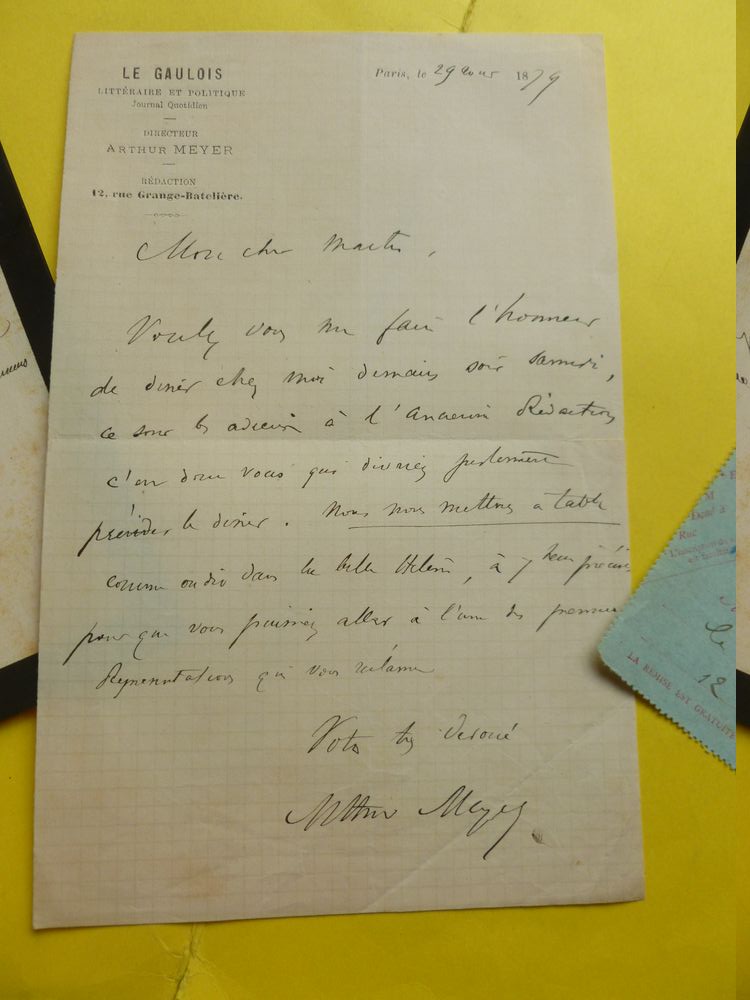 LE GAULOIS
LITTÉRAIRE ET POLITIQUE
Journal Quotidien
DIRECTEUR
ARTHUR MEYER
RÉDACTION
12, rue Grange-Batelière.
Paris, le 29 aout 1879
Mon cher maitre,
Voulez vous me faire l'honneur
de diner chez moi demain soir samedi,
ce sont les adieux à l'Ancienne Rédaction
c'est donc vous qui devriez justement
présider le diner. Nous nous mettrons à table
comme on dit dans la belle Hélène, à 7 heures précises
pour que vous puissiez aller à l'une des premières
Représentations qui vous réclame
Votre très dévoué
Arthur Meyer
Rue
LA REMISE EST GRATUITE
12